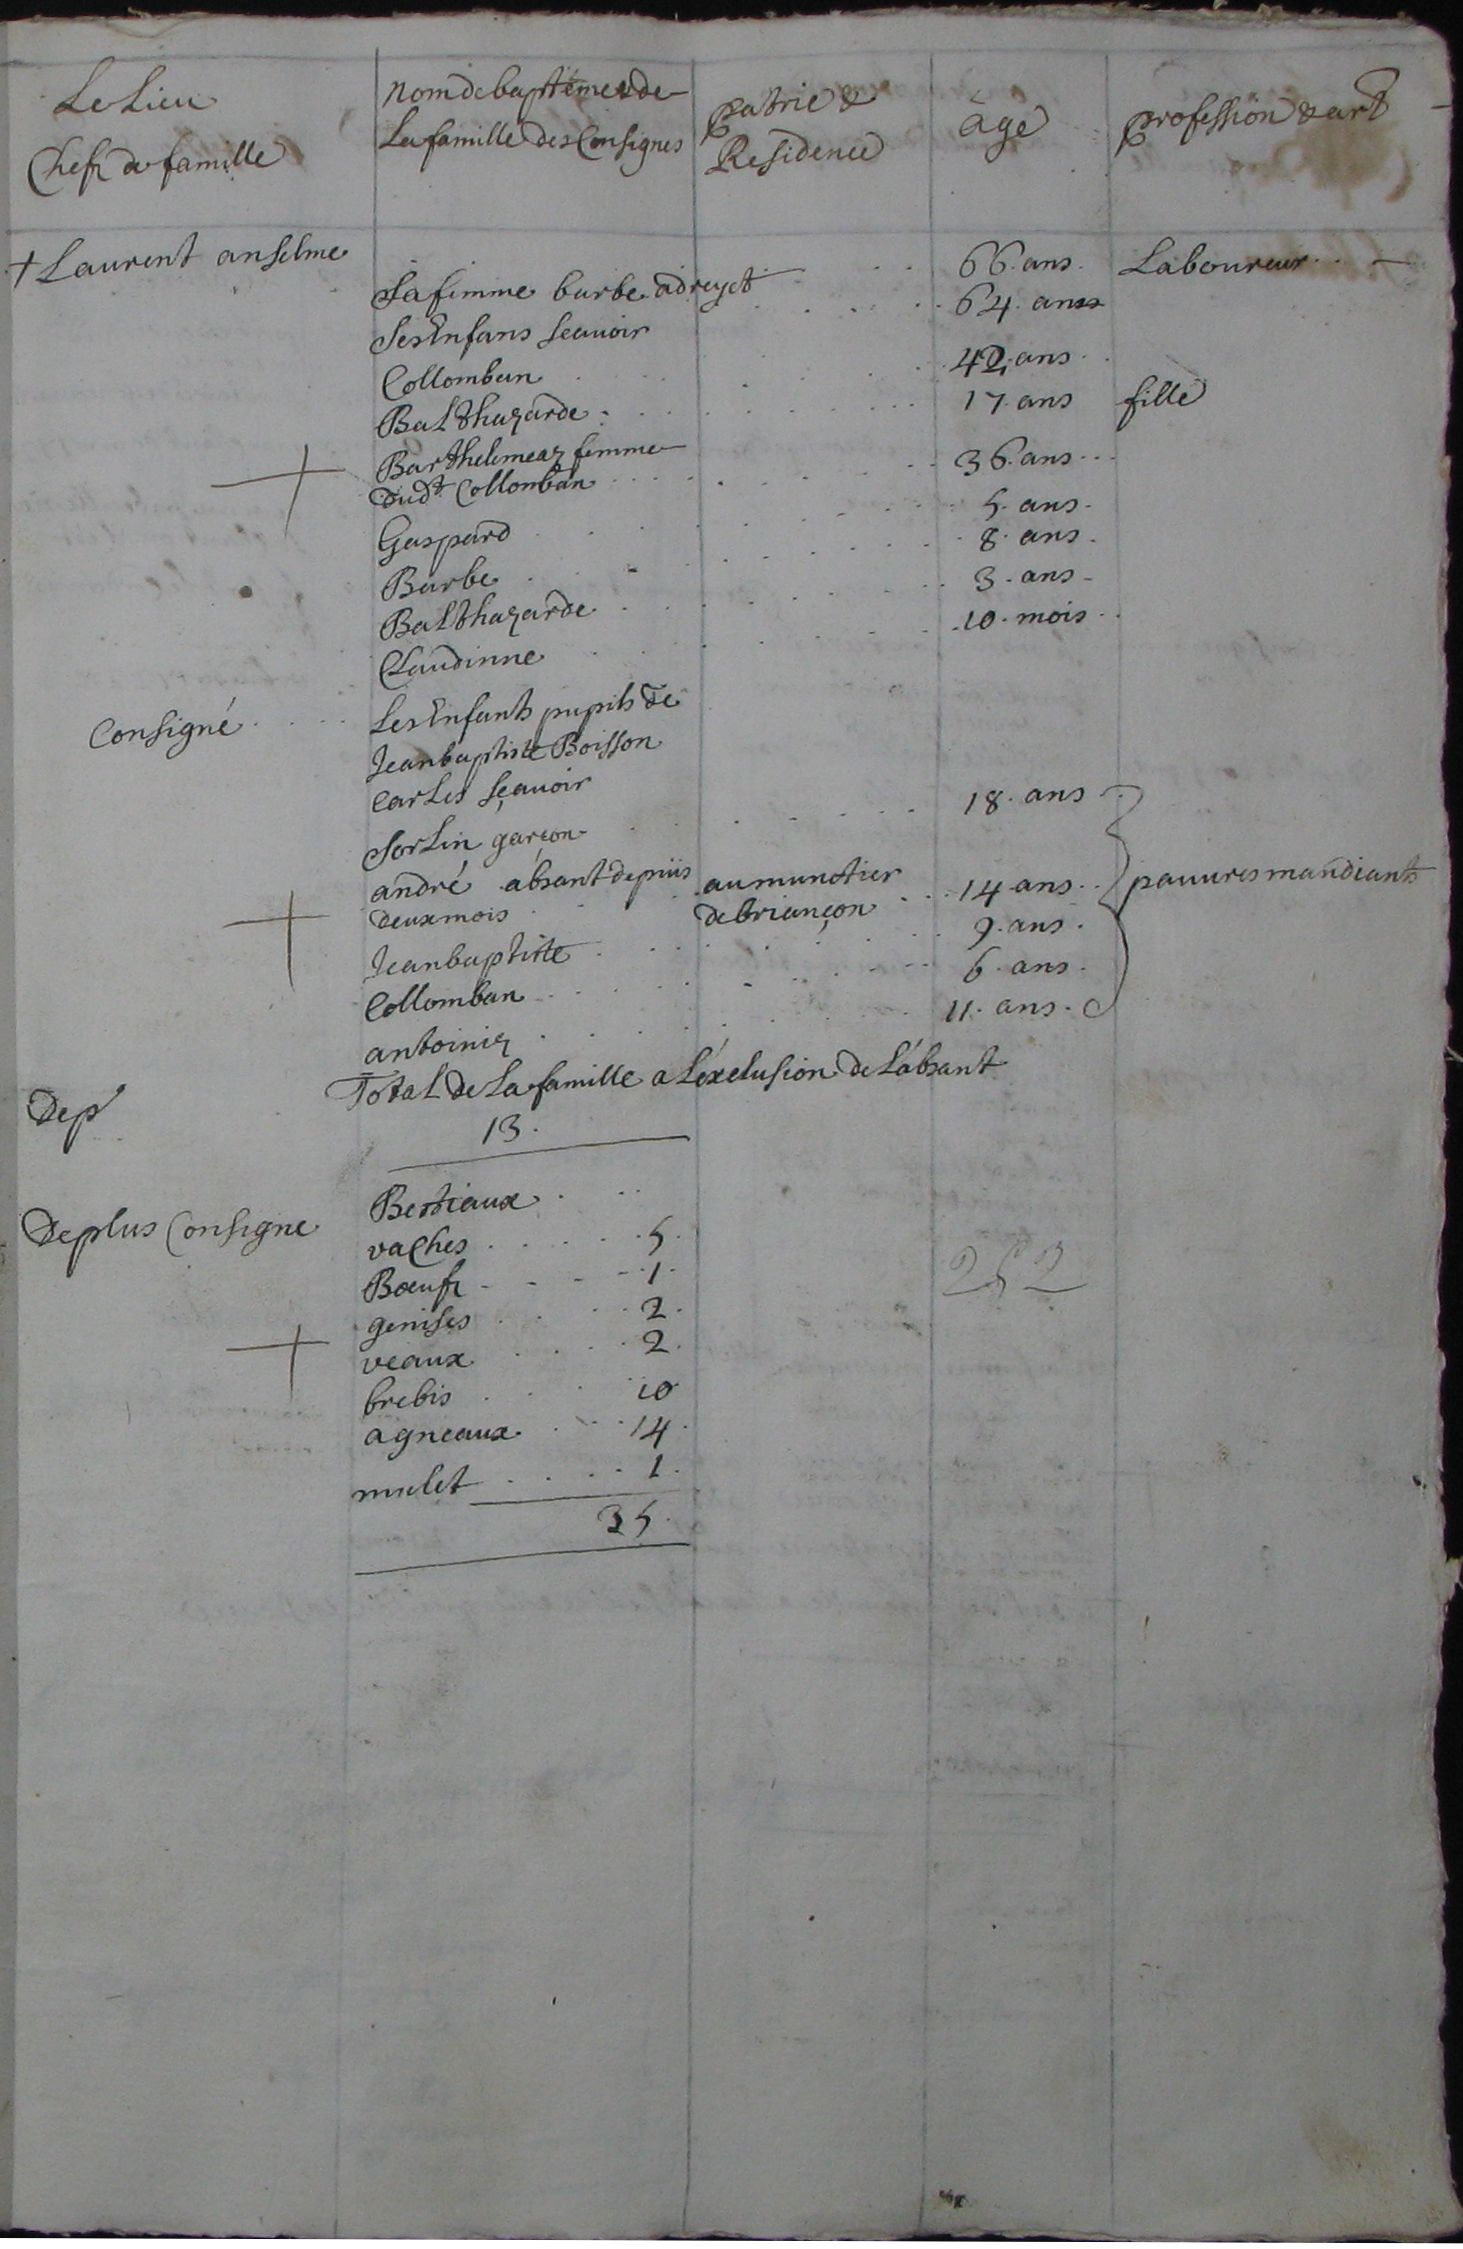 Le Lieu
Chefs de famille
nom de baptéme & de
La famille des Consignes
patrie &
Residence
âge
profession & art
+ Laurent anselme 66. ans. Laboureur
Sa femme barbe adreyct 64. ans
Ses Enfans Scauoir
Collomban 42. ans
Balthazarde 17. ans fille
Barthelemeaz femme
dudt Collomban 36. ans
Gaspard 5. ans
Barbe 8. ans
Balthazarde 3. ans
Claudinne 10. mois
Consigné Les Enfants pupils de
Jean baptiste Boisson
Car Les Sçauoir
Sorlin garçon 18. ans
andré absant depuis au munotier
deux mois de briançon 14. ans pauures mandiants
Jean baptiste 9. ans
Collomban 6. ans
antoiniz 11. ans
Total de La famille a L'éxclusion de L'absant
Dep
13.
De plus Consigne Bestiaux
vaches 5
Bœufs 1
genises 2
veaux 2
brebis 10
agneaux 14
mulet 1
35
252